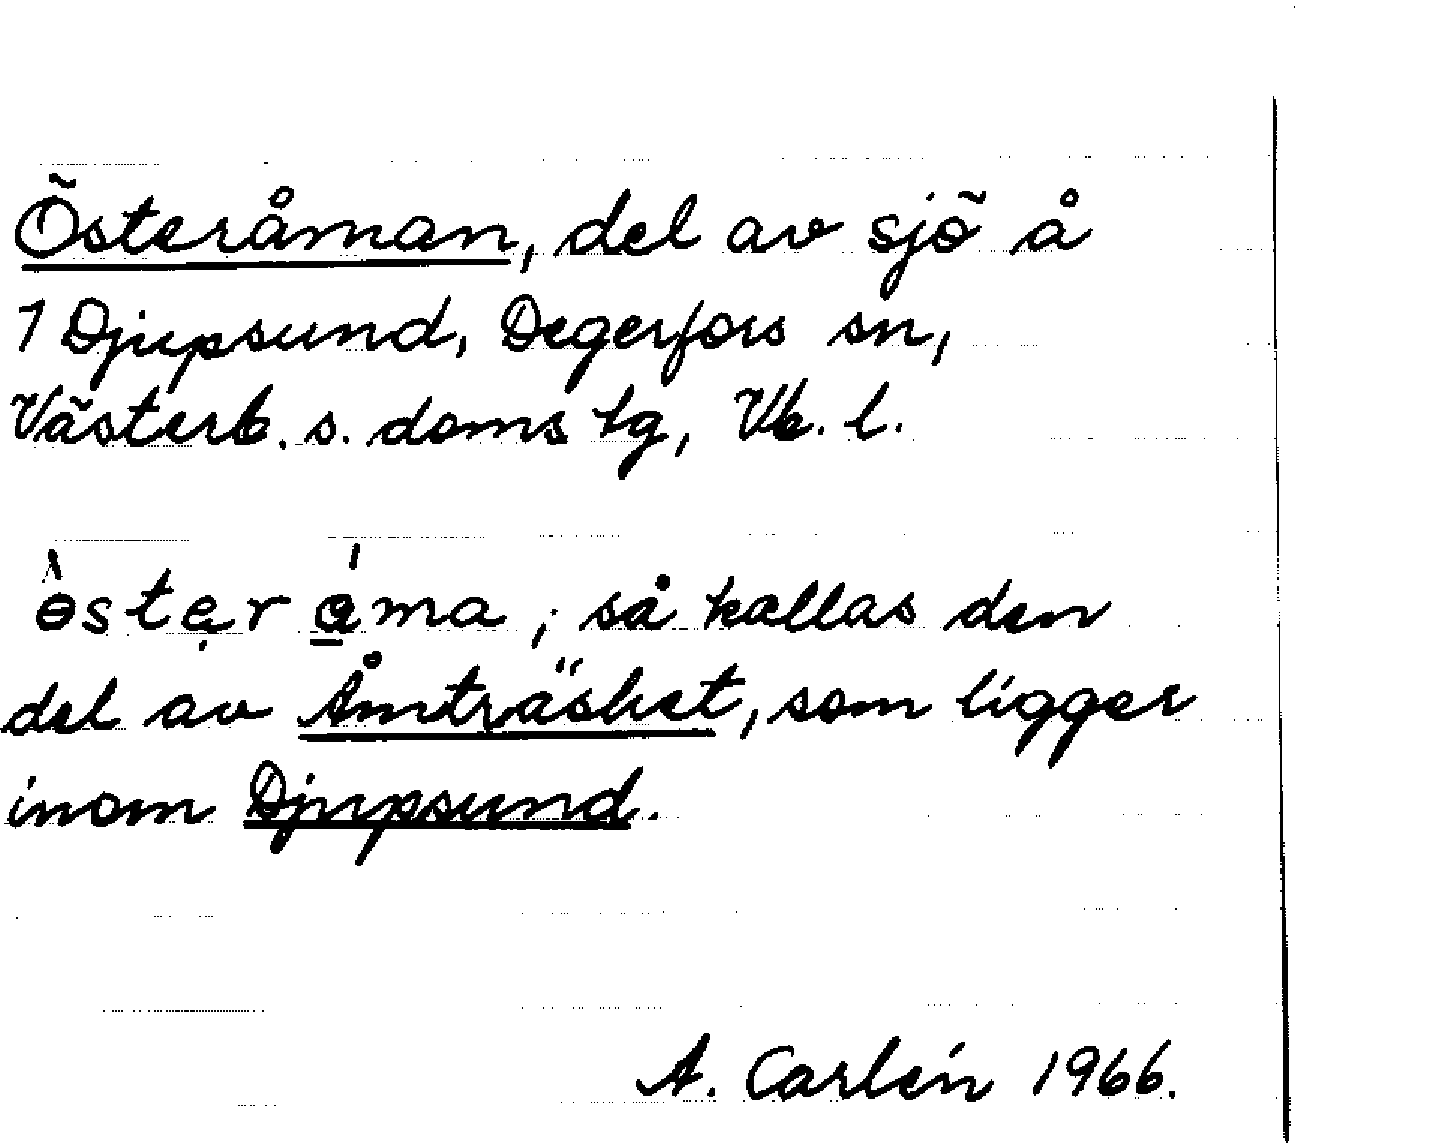 Österåman, del av sjö å
1 Djupsund, Degerfors sn,
Västerb. s. doms tg, Vb. l.
østẹr a̲ma, så kallas den
del av Åmträsket, som ligger
inom Djupsund.
A. Carlén 1966.